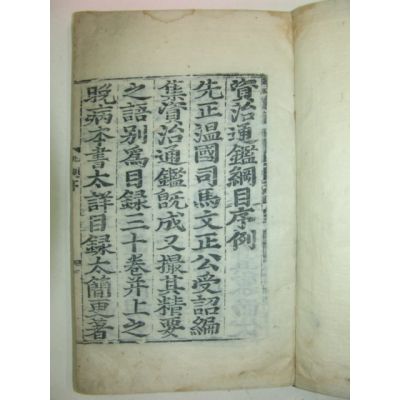 資治通鑑綱目序例
先正溫國司馬文正公受詔編
集資治通鑑旣成又撮其精要
之語別爲目錄三十卷幷上之
晩病本書太詳目錄太簡更著